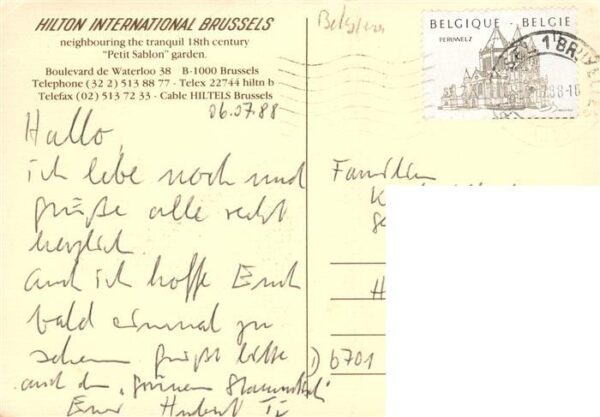 HILTON INTERNATIONAL BRUSSELS
neighbouring the tranquil 18th century
"Petit Sablon" garden.
Boulevard de Waterloo 38 B-1000 Brussels
Telephone (32 2) 513 88 77 - Telex 22744 hiltn b
Telefax (02) 513 72 33 - Cable HILTELS Brussels
06.07.88
Hallo,
ich lebe noch und
grüße alle recht
herzlich
und ich hoffe Euch
bald einmal zu
sehen grüßt bitte
auch den „grünen Stammtisch"
Euer Hubert
Belgien
BELGIQUE - BELGIE
PERUWELZ
1 BRUXEL
88-16
Familien
K
H
D 6701